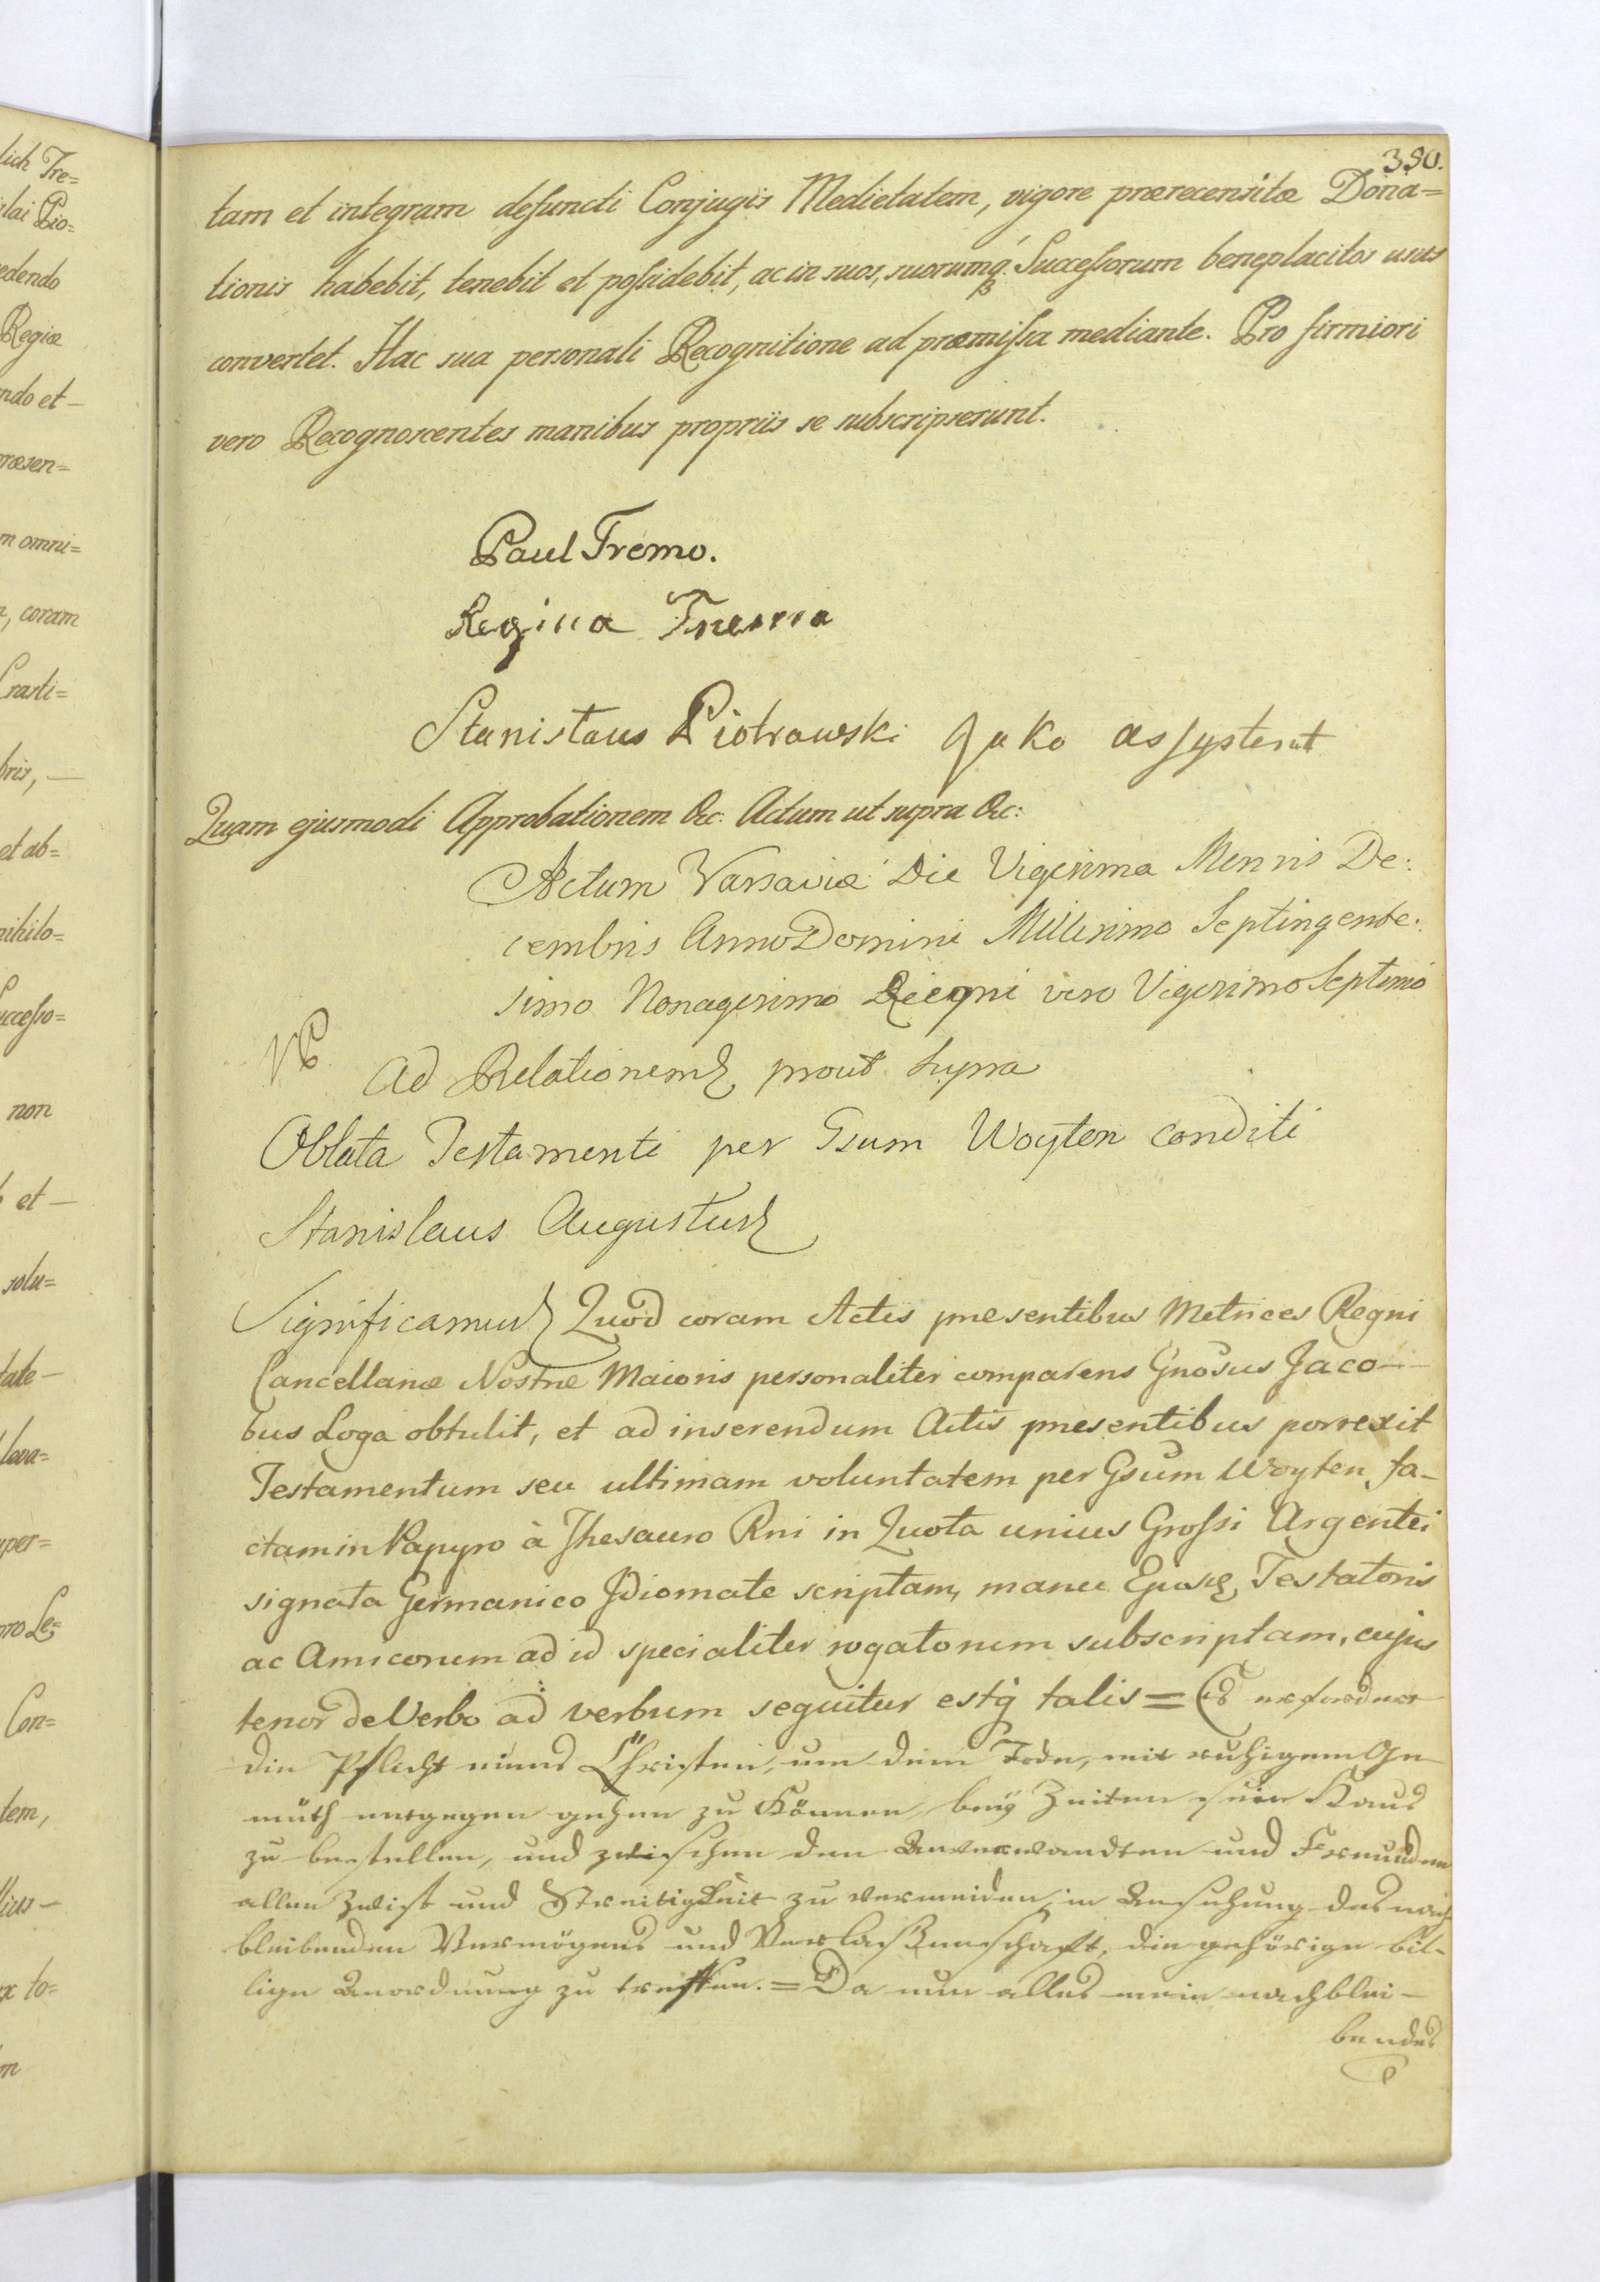 380.
tam et integram defuncti Conjugis Medietatem, vigore prærecensitæ Dona=
tionis habebit, tenebit et possidebit, ac in suos, suorumq́. Successorum beneplacitos usus
convertet. Hac sua personali Recognitione ad præmissa mediante. Pro firmiori
vero Recognoscentes manibus propriis se subscripserunt.
Paul Tremo.
Regina Tremo
Stanislaus Piotrowski Jako assystent
Quam ejusmodi Approbationem &c: Actum ut supra &c:
Actum Varsaviæ Die Vigesima Mensis De:
cembris Anno Domini Millesimo Septingente:
simo Nonagesimo Regni vero Vigesimo Septimo
Ad Relationem prout supra
Oblata Testamenti per Gsum Woyten conditi
Stanislaus Augustus
Significamus Quod coram Actis præsentibus Metrices Regni
Cancellariæ Nostræ Maioris personaliter comparens Gnosus Jaco—
bus Loga obtulit, et ad inserendum Actis præsentibus porrexit
Testamentum seu ultimam voluntatem per Gsum Woyten fa-
ctam in Papyro à Thesauro Rni in Quota unius Grossi Argentei
signata Germanico Idiomate scriptam, manu Ejusq, Testatoris
ac Amicorum ad id specialiter rogatorum subscriptam, cujus
tenor de Verbo ad verbum sequitur estq́ talis = Es erfordert
die Pflicht eines Christen, um dem Tode, mit ruhigem Ge
müth entgegen gehen zu Können, bey Zeiten sein Haus
zu bestellen, und zwischen den Anverwandten und Freunden
allen Zwist und Streitigkeit zu vermeiden, in Ansehung des nach
bleibenden Vermögens und Verlaßenschaft, die gehörige bil-
lige Anordnung zu treffen. = Da nun alles mein nachblei-
bendes